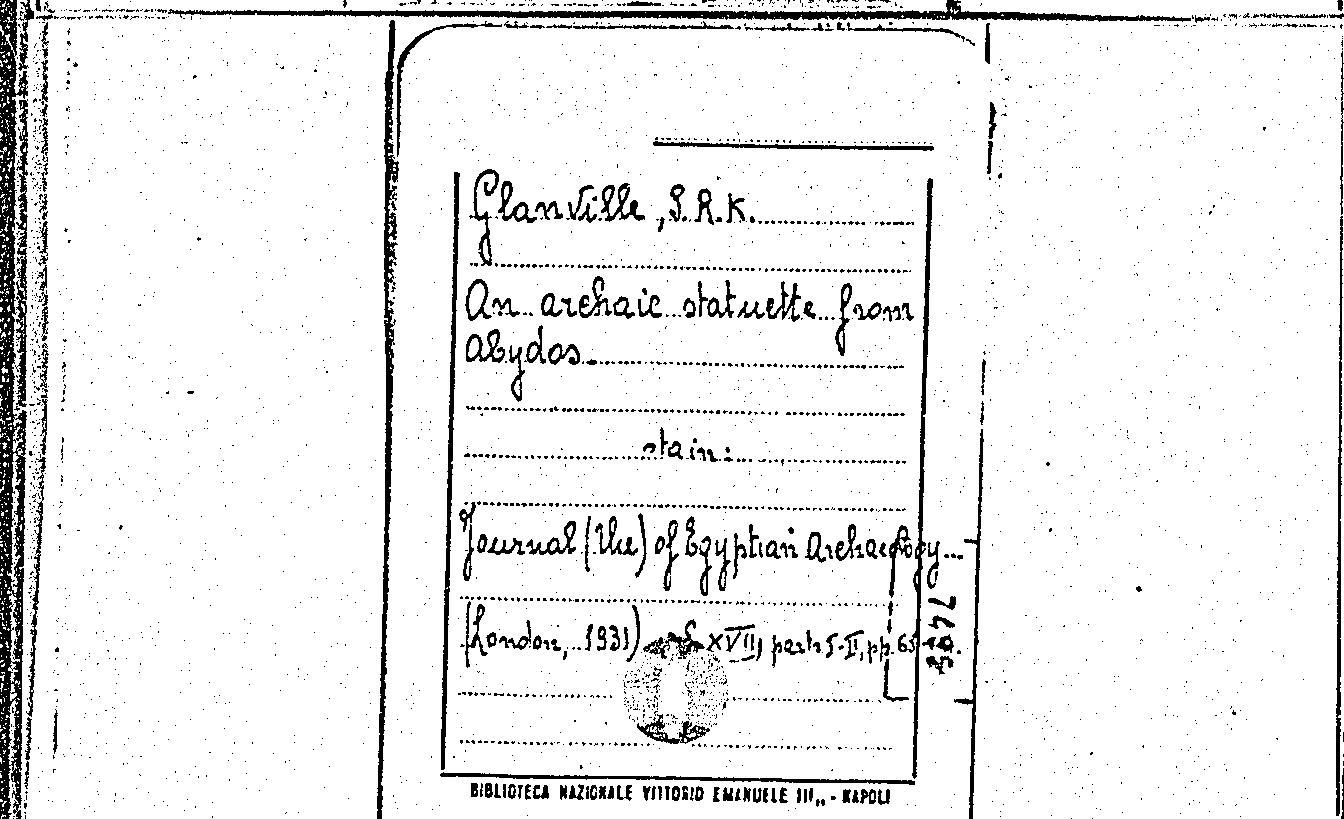 Glanville, S.R.K.
An archaic statuette from
Abydos.
sta in:
Journal (The) of Egyptian Archaeology
(London, 1931) XVII, parts I-II, pp. 65
BIBLIOTECA NAZIONALE VITTORIO EMANUELE III,, - NAPOLI